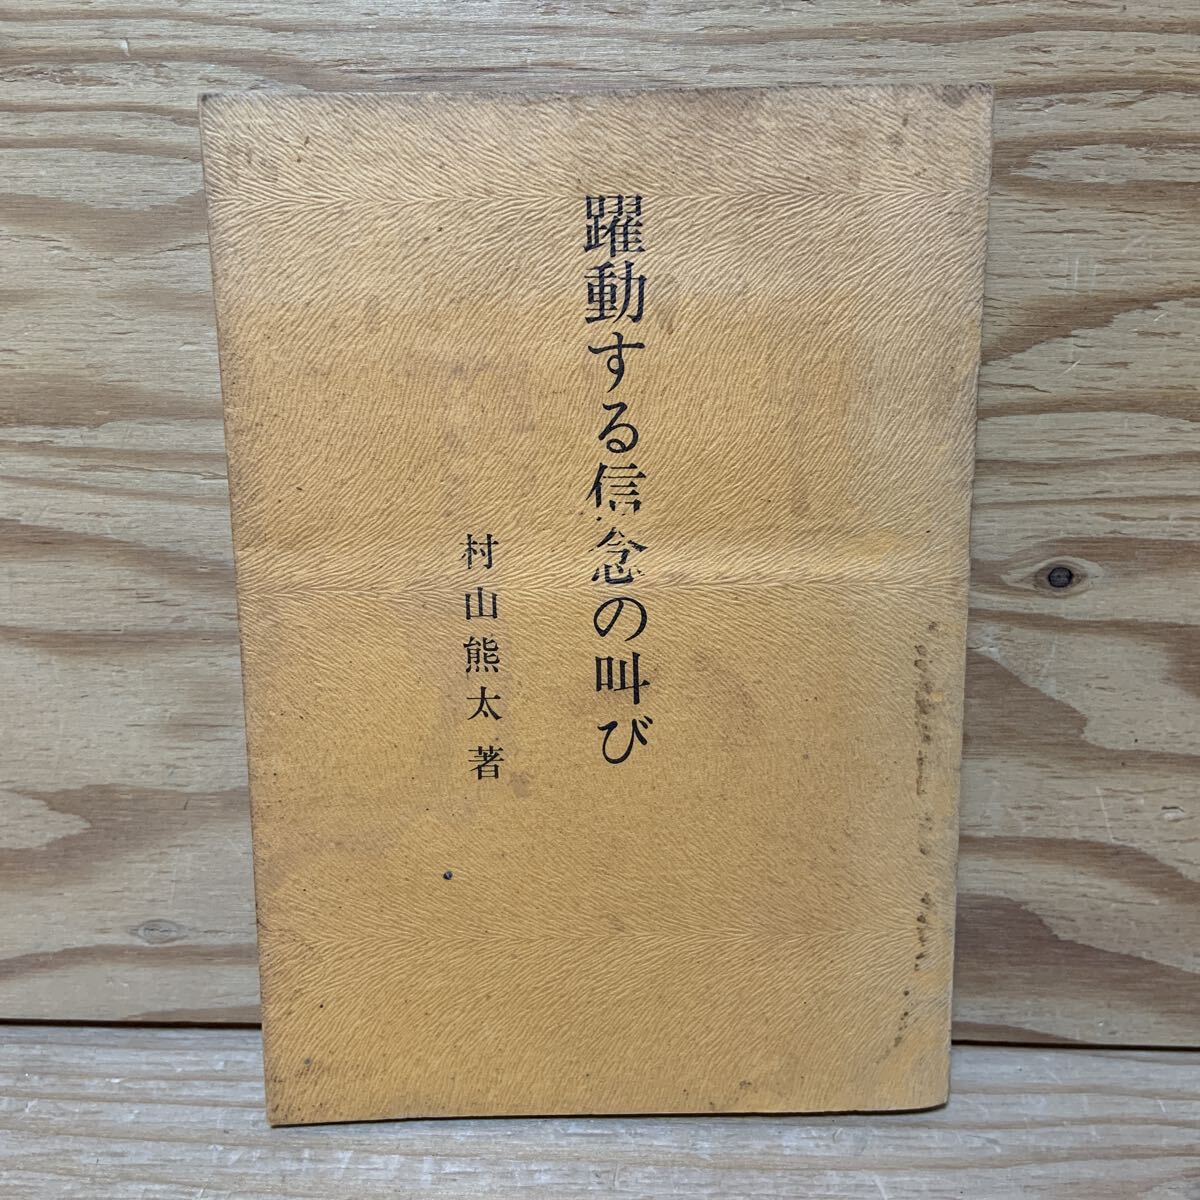 躍動する信念の叫び
村山熊太著